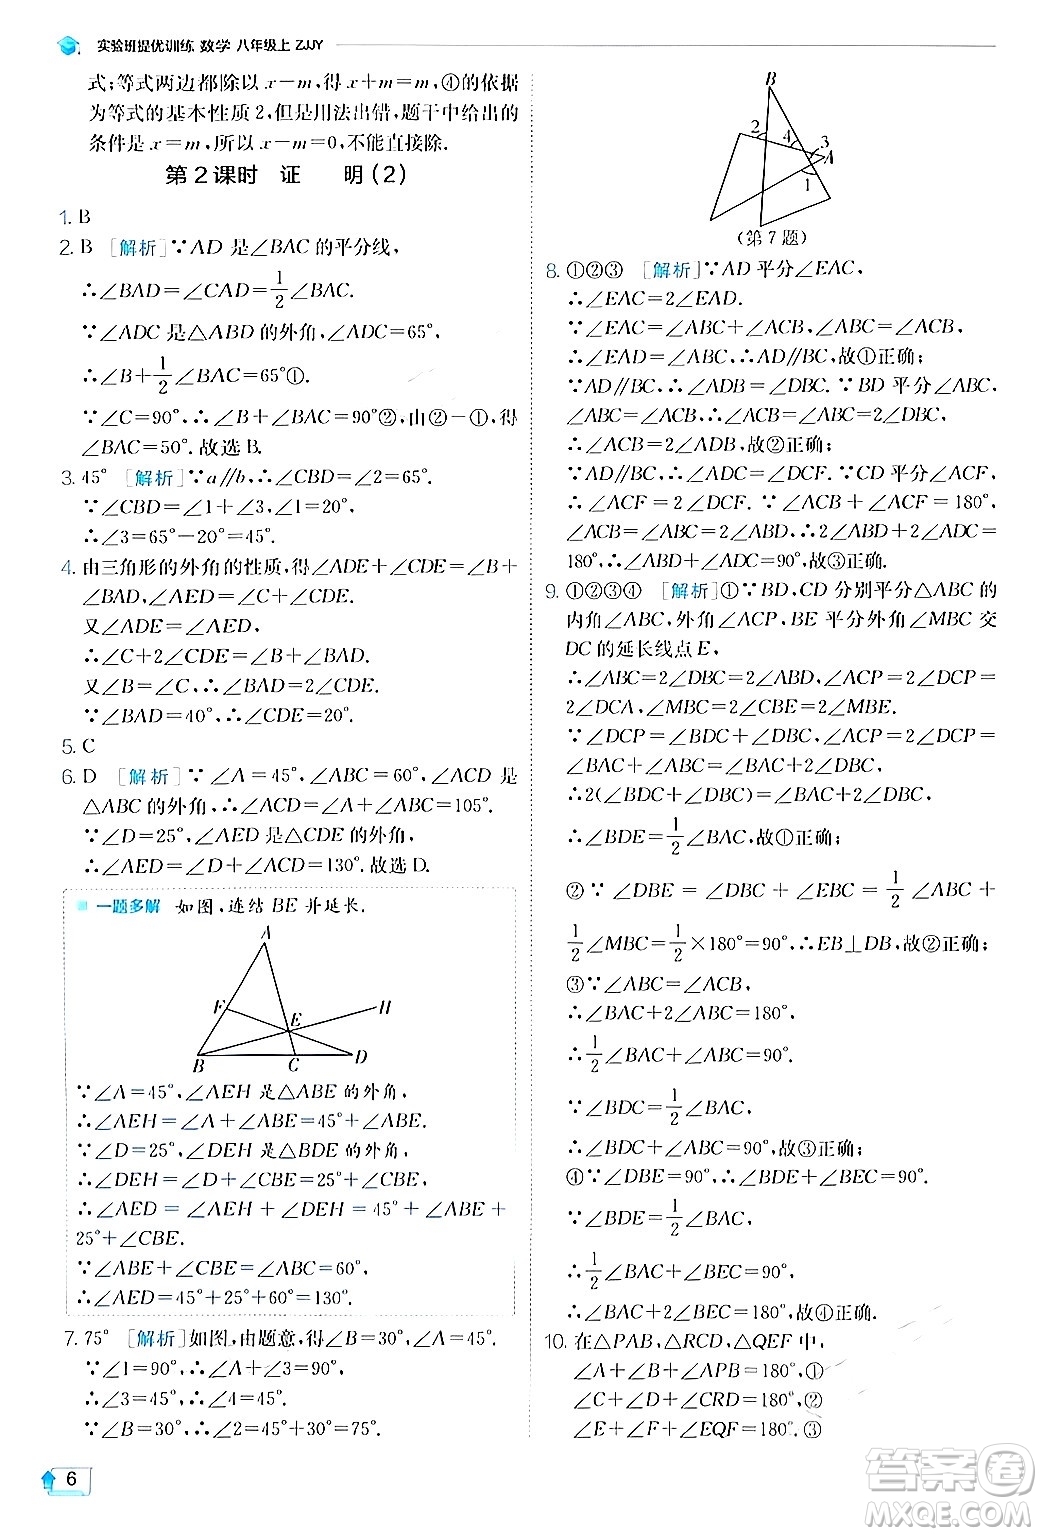 实验班提优训练 数学 八年级上 ZJJY
式;等式两边都除以 x－m,得 x＋m＝m,④的依据
为等式的基本性质 2,但是用法出错,题干中给出的
条件是 x＝m,所以 x－m＝0,不能直接除.
第 2 课时 证 明(2)
1. B
2. B [解析]∵AD 是∠BAC 的平分线,
∴∠BAD＝∠CAD＝1/2∠BAC.
∵∠ADC 是△ABD 的外角,∠ADC＝65°,
∴∠B＋1/2∠BAC＝65°①.
∵∠C＝90°,∴∠B＋∠BAC＝90°②,由②－①,得
∠BAC＝50°.故选 B.
3. 45° [解析]∵a∥b,∴∠CBD＝∠2＝65°.
∵∠CBD＝∠1＋∠3,∠1＝20°,
∴∠3＝65°－20°＝45°.
4. 由三角形的外角的性质,得∠ADE＋∠CDE＝∠B＋
∠BAD,∠AED＝∠C＋∠CDE.
又∠ADE＝∠AED,
∴∠C＋2∠CDE＝∠B＋∠BAD.
又∠B＝∠C,∴∠BAD＝2∠CDE.
∵∠BAD＝40°,∴∠CDE＝20°.
5. C
6. D [解析]∵∠A＝45°,∠ABC＝60°,∠ACD 是
△ABC 的外角,∴∠ACD＝∠A＋∠ABC＝105°.
∵∠D＝25°,∠AED 是△CDE 的外角,
∴∠AED＝∠D＋∠ACD＝130°.故选 D.
一题多解 如图,连结 BE 并延长.
A
F
E
H
B
C
D
∵∠A＝45°,∠AEH 是△ABE 的外角,
∴∠AEH＝∠A＋∠ABE＝45°＋∠ABE.
∵∠D＝25°,∠DEH 是△BDE 的外角,
∴∠DEH＝∠D＋∠CBE＝25°＋∠CBE,
∴∠AED＝∠AEH＋∠DEH＝45°＋∠ABE＋
25°＋∠CBE.
∵∠ABE＋∠CBE＝∠ABC＝60°,
∴∠AED＝45°＋25°＋60°＝130°.
7. 75° [解析]如图,由题意,得∠B＝30°,∠A＝45°.
∵∠1＝90°,∴∠A＋∠3＝90°,
∴∠3＝45°,∴∠4＝45°.
∵∠B＝30°,∴∠2＝∠B＋∠4＝75°.
B
2
4
3
A
1
(第 7 题)
8. ①②③ [解析]∵AD 平分∠EAC,
∴∠EAC＝2∠EAD.
∵∠EAC＝∠ABC＋∠ACB,∠ABC＝∠ACB,
∴∠EAD＝∠ABC,∴AD∥BC,故①正确;
∵AD∥BC,∴∠ADB＝∠DBC.∵BD 平分∠ABC,
∠ABC＝∠ACB,∴∠ABC＝∠ACB＝2∠DBC,
∴∠ACB＝2∠ADB,故②正确;
∵AD∥BC,∴∠ADC＝∠DCF.∵CD 平分∠ACF,
∴∠ACF＝2∠DCF.∵∠ACB＋∠ACF＝180°,
∠ACB＝∠ABC＝2∠ABD,∴2∠ABD＋2∠ADC＝
180°,∴∠ABD＋∠ADC＝90°,故③正确.
9. ①②③④ [解析]①∵BD,CD 分别平分△ABC 的
内角∠ABC,外角∠ACP,BE 平分外角∠MBC 交
DC 的延长线点 E,
∴∠ABC＝2∠DBC＝2∠ABD,∠ACP＝2∠DCP＝
2∠DCA,∠MBC＝2∠CBE＝2∠MBE.
∵∠DCP＝∠BDC＋∠DBC,∠ACP＝2∠DCP＝
∠BAC＋∠ABC,∠ABC＝2∠DBC,
∴2(∠BDC＋∠DBC)＝∠BAC＋2∠DBC,
∴∠BDE＝1/2∠BAC,故①正确;
②∵∠DBE＝∠DBC＋∠EBC＝1/2∠ABC＋
1/2∠MBC＝1/2×180°＝90°,∴EB⊥DB,故②正确;
③∵∠ABC＝∠ACB,
∴∠BAC＋2∠ABC＝180°,
∴1/2∠BAC＋∠ABC＝90°.
∵∠BDC＝1/2∠BAC,
∴∠BDC＋∠ABC＝90°,故③正确;
④∵∠DBE＝90°,∴∠BDE＋∠BEC＝90°.
∵∠BDE＝1/2∠BAC,
∴1/2∠BAC＋∠BEC＝90°,
∴∠BAC＋2∠BEC＝180°,故④正确.
10. 在△PAB,△RCD,△QEF 中,
∠A＋∠B＋∠APB＝180°,①
∠C＋∠D＋∠CRD＝180°,②
∠E＋∠F＋∠EQF＝180°.③
6
答案圈
MXQE.COM